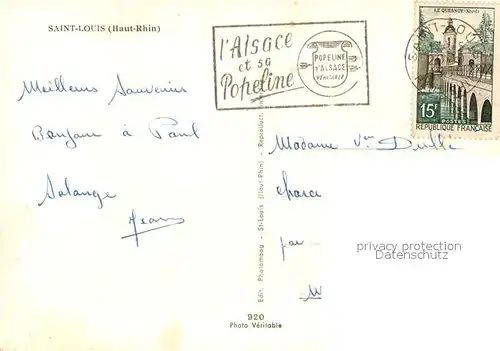 SAINT-LOUIS (Haut-Rhin)
l'Alsace
et sa
Popeline
POPELINE
D'ALSACE
VÉRITABLE
LE QUESNOY-(Nord)
SAINT-LOU
15F
POSTES
REPUBLIQUE FRANÇAISE
Meilleurs Souvenirs
Bonjour à Paul
Solange
Jean
Madame Vve
par
privacy protection
Datenschutz
Edit. Photomaag - St-Louis (Haut-Rhin) - Reproduct.
920
Photo Véritable